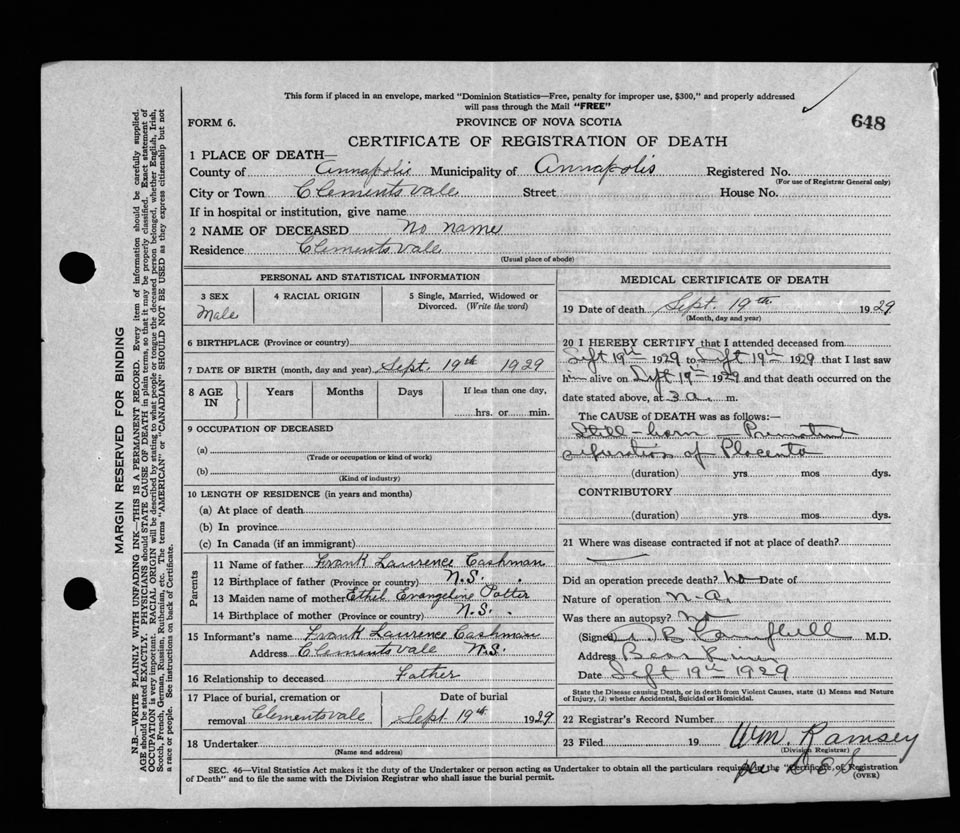 This form if placed in an envelope, marked "Dominion Statistics—Free, penalty for improper use, $300," and properly addressed
will pass through the Mail "FREE"
648
FORM 6. PROVINCE OF NOVA SCOTIA
CERTIFICATE OF REGISTRATION OF DEATH
1 PLACE OF DEATH—
County of Annapolis Municipality of Annapolis Registered No.
(For use of Registrar General only)
City or Town Clementsvale Street House No.
If in hospital or institution, give name
2 NAME OF DECEASED No name
Residence Clementsvale
(Usual place of abode)
PERSONAL AND STATISTICAL INFORMATION
3 SEX 4 RACIAL ORIGIN 5 Single, Married, Widowed or
Divorced. (Write the word)
Male
6 BIRTHPLACE (Province or country)
7 DATE OF BIRTH (month, day and year) Sept. 19th 1929
8 AGE IN Years Months Days If less than one day,
hrs. or min.
9 OCCUPATION OF DECEASED
(a)
(Trade or occupation or kind of work)
(b)
(Kind of industry)
10 LENGTH OF RESIDENCE (in years and months)
(a) At place of death
(b) In province
(c) In Canada (if an immigrant)
Parents
11 Name of father Frank Laurence Cashman
12 Birthplace of father (Province or country) N.S.
13 Maiden name of mother Ethel Evangeline Potter
14 Birthplace of mother (Province or country) N.S.
15 Informant's name Frank Laurence Cashman
Address Clementsvale N.S.
16 Relationship to deceased Father
17 Place of burial, cremation or Date of burial
removal Clementsvale Sept. 19th 1929
18 Undertaker
(Name and address)
MEDICAL CERTIFICATE OF DEATH
19 Date of death Sept. 19th 1929
(Month, day and year)
20 I HEREBY CERTIFY that I attended deceased from
Sept 19th 1929 to Sept 19th 1929 that I last saw
him alive on Sept 19th 1929 and that death occurred on the
date stated above, at 3 a. m.
The CAUSE OF DEATH was as follows:—
Still-born — Premature
separation of Placenta
(duration) yrs mos dys.
CONTRIBUTORY
(duration) yrs mos dys.
21 Where was disease contracted if not at place of death?
Did an operation precede death? no Date of
Nature of operation n.a.
Was there an autopsy? no
(Signed) B Campbell M.D.
Address Bear River
Date Sept 19th 1929
State the Disease causing Death, or in death from Violent Causes, state (1) Means and Nature
of Injury, (2) whether Accidental, Suicidal or Homicidal.
22 Registrar's Record Number
23 Filed 19 Wm. Ramsey
(Division Registrar)
per
SEC. 46—Vital Statistics Act makes it the duty of the Undertaker or person acting as Undertaker to obtain all the particulars required in the "Certificate of Registration
of Death" and to file the same with the Division Registrar who shall issue the burial permit. (OVER)
MARGIN RESERVED FOR BINDING
N.B.—WRITE PLAINLY WITH UNFADING INK—THIS IS A PERMANENT RECORD. Every item of information should be carefully supplied.
AGE should be stated EXACTLY. PHYSICIANS should STATE CAUSE OF DEATH in plain terms, so that it may be properly classified. Exact statement of
OCCUPATION is very important. RACIAL ORIGIN will be described by stating to what people or tongue the deceased person belonged, whether English, Irish,
Scotch, French, German, Russian, Ruthenian, etc. The terms "AMERICAN" or "CANADIAN" SHOULD NOT BE USED as they express citizenship but not
a race or people. See instructions on back of Certificate.